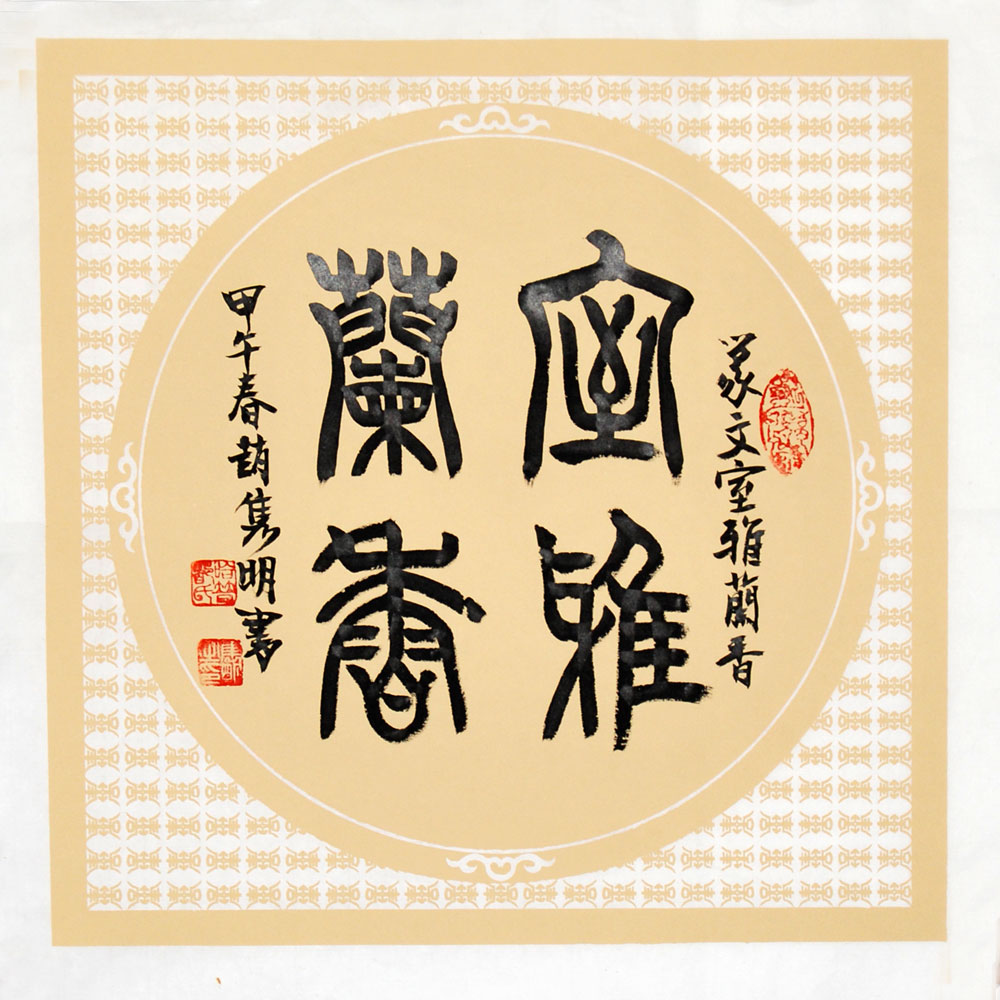 篆文室雅蘭香
室雅
蘭香
甲午春趙隽明書